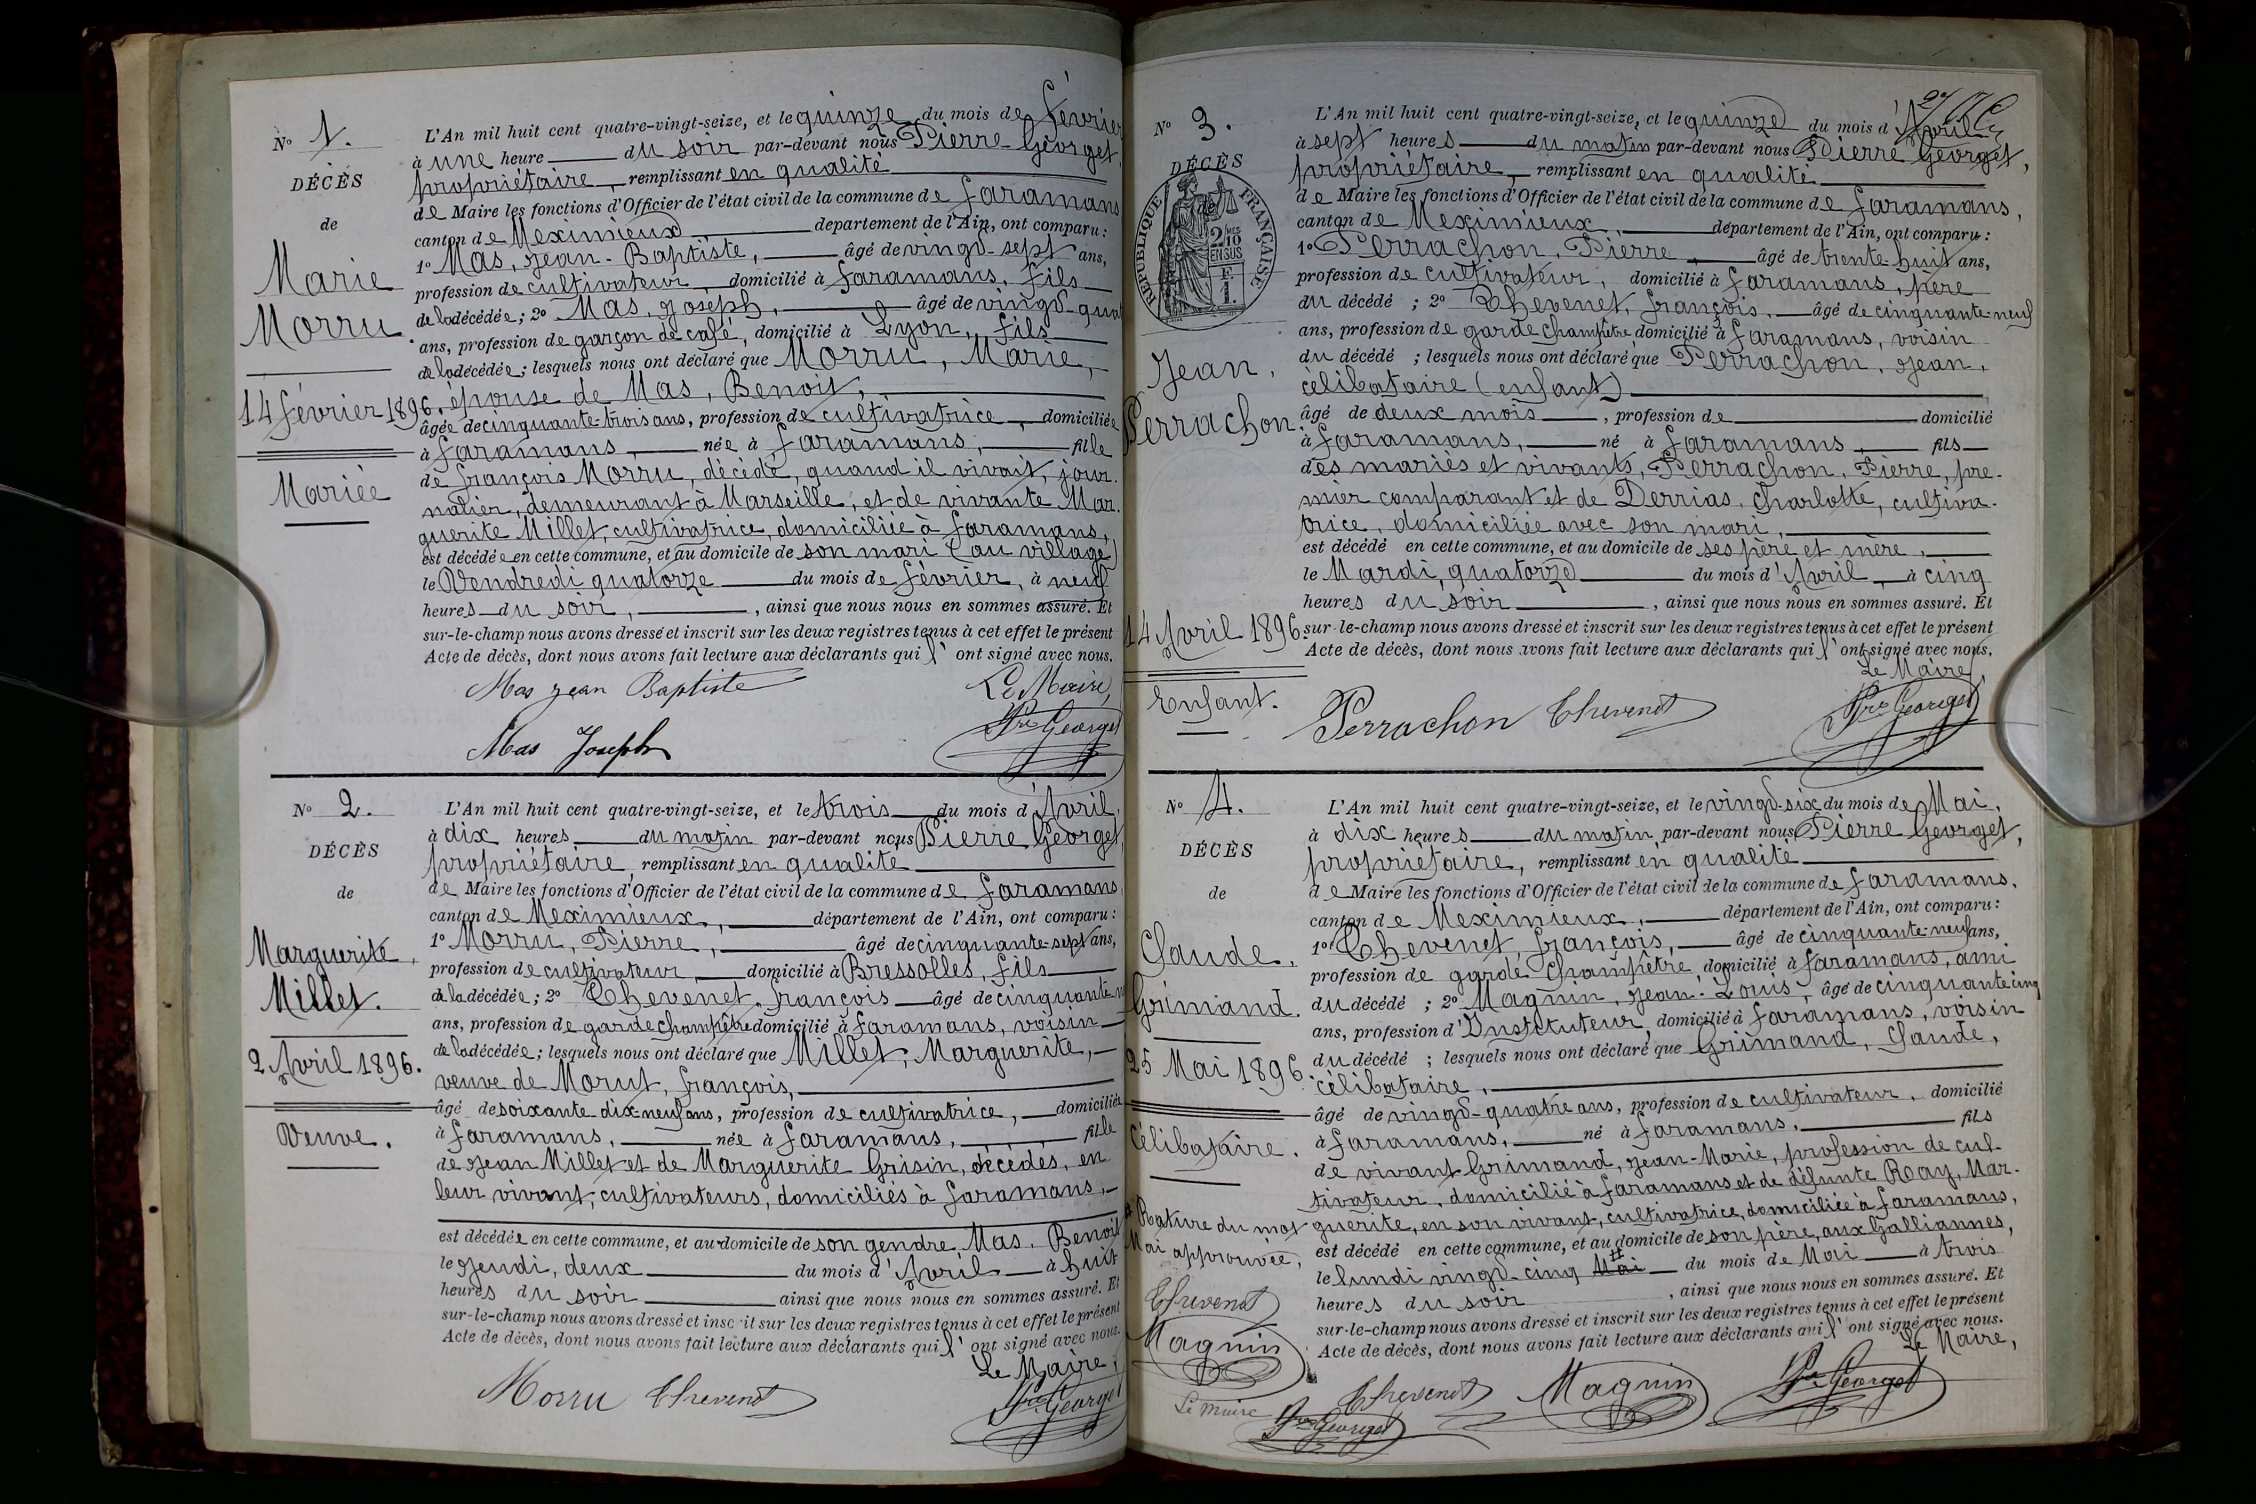 N° 1.
DÉCÈS
de
Marie
Morru
14 février 1896.
Mariée
L'An mil huit cent quatre-vingt-seize, et le quinze du mois de février
à une heure du soir par-devant nous Pierre Georget,
propriétaire, remplissant en qualité
de Maire les fonctions d'Officier de l'état civil de la commune de faramans
canton de Meximieux département de l'Ain, ont comparu:
1° Mas, Jean-Baptiste, âgé de vingt-sept ans,
profession de cultivateur, domicilié à faramans, fils
de la décédée; 2° Mas, Joseph, âgé de vingt-quat
ans, profession de garçon de café, domicilié à Lyon, fils
de la décédée; lesquels nous ont déclaré que Morru, Marie,
épouse de Mas, Benoit,
âgée de cinquante-trois ans, profession de cultivatrice, domiciliée
à faramans, née à faramans, fille
de françois Morru, décédé, quand il vivait, jour-
nalier, demeurant à Marseille, et de vivante Mar-
guerite Millet, cultivatrice, domiciliée à faramans,
est décédée en cette commune, et au domicile de son mari (au village)
le Vendredi quatorze du mois de février, à neuf
heures du soir, ainsi que nous nous en sommes assuré. Et
sur-le-champ nous avons dressé et inscrit sur les deux registres tenus à cet effet le présent
Acte de décès, dont nous avons fait lecture aux déclarants qui l'ont signé avec nous.
Mas Jean Baptiste Le Maire,
Mas Joseph Pre Georget
N° 2.
DÉCÈS
de
Marguerite
Millet.
2 Avril 1896.
Veuve.
L'An mil huit cent quatre-vingt-seize, et le trois du mois d'Avril,
à dix heures du matin par-devant nous Pierre Georget,
propriétaire, remplissant en qualité
de Maire les fonctions d'Officier de l'état civil de la commune de faramans
canton de Meximieux, département de l'Ain, ont comparu:
1° Morru, Pierre, âgé de cinquante-sept ans,
profession de cultivateur, domicilié à Bressolles, fils
de la décédée; 2° Chevenet, françois âgé de cinquante-n
ans, profession de garde champêtre domicilié à faramans, voisin
de la décédée; lesquels nous ont déclaré que Millet, Marguerite,
veuve de Morut, françois,
âgé de soixante dix-neuf ans, profession de cultivatrice, domiciliée
à faramans, née à faramans, fille
de Jean Millet et de Marguerite Grisin, décédés, en
leur vivant, cultivateurs, domiciliés à faramans,
est décédée en cette commune, et au domicile de son gendre Mas, Benoit
le Jeudi, deux du mois d'Avril à huit
heures du soir ainsi que nous nous en sommes assuré. Et
sur-le-champ nous avons dressé et inscrit sur les deux registres tenus à cet effet le présent
Acte de décès, dont nous avons fait lecture aux déclarants qui l'ont signé avec nous.
Le Maire,
Morru Chevenet Pre Georget
N° 3.
DÉCÈS
de
RÉPUBLIQUE FRANÇAISE
2 MES
10
EN SUS
F.
1.
Jean,
Perrachon.
14 Avril 1896.
Enfant.
L'An mil huit cent quatre-vingt-seize, et le quinze du mois d'Avril
à sept heures du matin par-devant nous Pierre Georget,
propriétaire, remplissant en qualité
de Maire les fonctions d'Officier de l'état civil de la commune de faramans,
canton de Meximieux, département de l'Ain, ont comparu:
1° Perrachon, Pierre, âgé de trente-huit ans,
profession de cultivateur, domicilié à faramans, père
du décédé ; 2° Chevenet, françois, âgé de cinquante-neuf
ans, profession de garde champêtre domicilié à faramans, voisin
du décédé ; lesquels nous ont déclaré que Perrachon, Jean,
célibataire (enfant)
âgé de deux mois, profession de domicilié
à faramans, né à faramans, fils
des mariés et vivants, Perrachon, Pierre, pre-
mier comparant et de Derrias, Charlotte, cultiva-
trice, domiciliée avec son mari,
est décédé en cette commune, et au domicile de ses père et mère,
le Mardi, quatorze du mois d'Avril, à cinq
heures du soir, ainsi que nous nous en sommes assuré. Et
sur-le-champ nous avons dressé et inscrit sur les deux registres tenus à cet effet le présent
Acte de décès, dont nous avons fait lecture aux déclarants qui l'ont signé avec nous.
Le Maire,
Perrachon Chevenet Pre Georget
N° 4.
DÉCÈS
de
Claude,
Grimand.
25 Mai 1896.
Célibataire.
# Rature du mot
Mai approuvée,
Chevenet
Magnin
Le Maire
Pre Georget
L'An mil huit cent quatre-vingt-seize, et le vingt-six du mois de Mai,
à dix heures du matin par-devant nous Pierre Georget,
propriétaire, remplissant en qualité
de Maire les fonctions d'Officier de l'état civil de la commune de faramans,
canton de Meximieux, département de l'Ain, ont comparu:
1° Chevenet, françois, âgé de cinquante-neuf ans,
profession de garde champêtre, domicilié à faramans, ami
du décédé ; 2° Magnin, Jean-Louis, âgé de cinquante cinq
ans, profession d'Instituteur, domicilié à faramans, voisin
du décédé ; lesquels nous ont déclaré que Grimand, Claude,
célibataire,
âgé de vingt-quatre ans, profession de cultivateur, domicilié
à faramans, né à faramans, fils
de vivant Grimand, Jean-Marie, profession de cul-
tivateur, domicilié à faramans et de défunte Ray, Mar-
guerite, en son vivant, cultivatrice, domiciliée à faramans,
est décédé en cette commune, et au domicile de son père, aux Galliannes,
le lundi vingt-cinq Mai # du mois de Mai à trois
heures du soir, ainsi que nous nous en sommes assuré. Et
sur-le-champ nous avons dressé et inscrit sur les deux registres tenus à cet effet le présent
Acte de décès, dont nous avons fait lecture aux déclarants qui l'ont signé avec nous.
Le Maire,
Chevenet Magnin Pre Georget